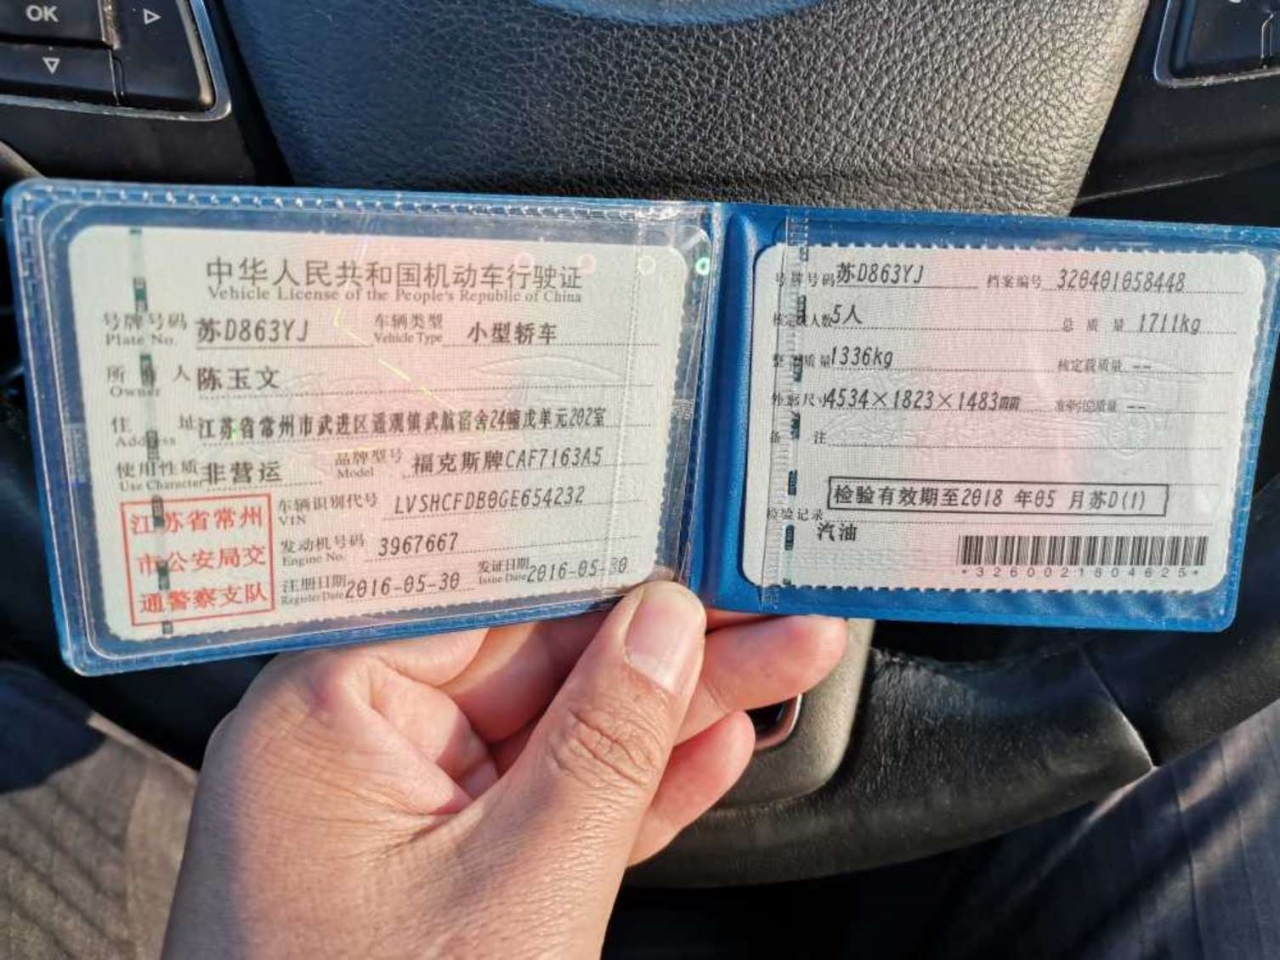 OK
中华人民共和国机动车行驶证
Vehicle License of the People's Republic of China
号牌号码 苏D863YJ 车辆类型 小型轿车
Plate No. Vehicle Type
所 人 陈玉文
Owner
住 址 江苏省常州市武进区遥观镇武航宿舍24幢戊单元202室
Address
使用性质 非营运 品牌型号 福克斯牌CAF7163A5
Use Character Model
江苏省常州
市公安局交
通警察支队
车辆识别代号 LVSHCFDB0GE654232
VIN
发动机号码 3967667
Engine No.
注册日期 2016-05-30 发证日期 2016-05-30
Register Date Issue Date
号牌号码 苏D863YJ 档案编号 320401058448
核定 人数 5人 总 质 量 1711kg
整 质量 1336kg 核定载质量 --
外 尺寸 4534×1823×1483mm 准牵引总质量 --
备 注
检验有效期至2018 年05 月苏D(1)
检验记录
汽油
*3260021804625*